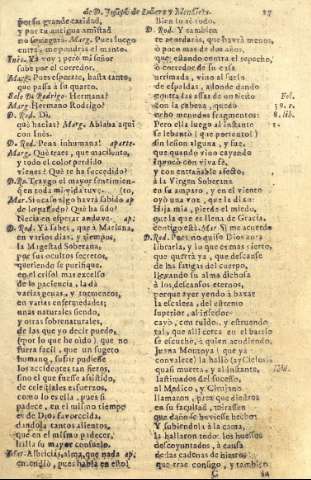 de D. Joseph de
27
por su grande caridad,
y por la antigua amistad
no se negará. Marg. Pues luego
entra, me pondras el manto.
Ines. Yà voy; pero mi señor
sube por el corredor.
Marg. Pues esperate, hasta tanto,
que passa à su quarto.
Sale D. Rodrigo. Hermana?
Marg. Hermano Rodrigo?
D. Rod. Di,
què hacias? Marg. Ablaba aqui
con Inès.
D. Rod. Pena inhumana! aparte.
Marg. Què traes, que
y todo el color perdido
vienes? Què te ha succedido?
D. Ro. Traygo el mayor sentimiento,
en toda mi vida tuve.
Mar. Si acaso algo havrà sabido ap.
de lo passado? Què ha sido?
Necia en esperar anduve. ap.
D. Rod. Yà sabes, que à Mariana,
en varios dias, y tiempos,
la Magestad Soberana,
por sus ocultos secretos,
queriendo se purifique,
en el crisol mas excelso
de la paciencia, la dà
varias penas, y tormentos,
en varias enfermedades;
unas naturales siendo,
y otras sobrenaturales,
de las que yo decir puedo,
(por lo que he oido) que no
fuera facil, que un sugeto
humano, sufrir pudiesse
los accidentes tan fieros,
sino el que fuesse asistido,
de celestiales esfuerzos,
como lo es ella, pues si
padece, en el mismo tiempo
es de Dios favorecida,
dandola tantos alientos,
que en el mismo padecer,
halla su mayor consuelo.
Mar. Albricias, alma, que nada ap.
entendiò, pues habla en esto!
Bien lo sè todo.
D. Rod. Y tambien
te acordaràs, que havrà menos,
ò poco mas de dos años,
que estando contra el repecho,
de corredor de su casa
arrimada, vino al suelo
de espaldas, à donde dando
contra dos assas de un tiesto
con la cabeza, quedò
hecho menudos fragmentos:
Pero ella luego al instante
se lebantò (que portento!)
sin lesion alguna, y fue,
que quando vino cayendo
invocò con viva fè,
y con entrañable afecto,
à la Virgen Soberana
en su amparo, y en el viento
oyò una voz, que la dixo:
Hija mia, pierde el miedo,
que la que es llena de Gracia,
contigo està. Mar. Si me acuerdo.
D. Rod. Pues no quiso Dios aora
librarla, y lo que es mas cierto,
que querrà yà, que descanse
de las fatigas del cuerpo,
llevando su alma dichosa
à los descansos eternos,
porque ayer yendo à baxar
la escalera, del estremo
superior, al inferior
cayò, con ruido, y estruendo
tal, que alli cerca en el barrio
se escuchò, à quien acudiendo,
Juana Montoya (que yà
convalece) la hallò (ay Cielos!)
quasi muerta, y al instante,
lastimados del suceso,
al Medico, y Cirujano
llamaron, para que diestros
en su facultad, mirassen
que daño se huviesse hecho:
Y subiendola à la cama,
la hallaron todos los huessos
descoyuntados, y à causa
de las cadenas de hierros
que trae consigo, y tambien
G
la
Fol.
39. c.
8. lib.
1.